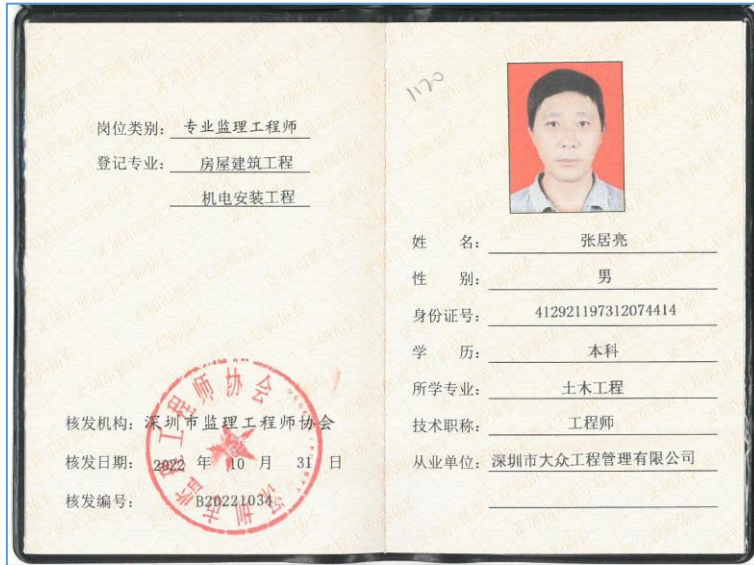 岗位类别：专业监理工程师
登记专业：房屋建筑工程
机电安装工程
深圳市监理工程师协会
核发机构：深圳市监理工程师协会
核发日期：2022 年 10 月 31 日
核发编号：B20221034
1170
姓 名：张居亮
性 别：男
身份证号：412921197312074414
学 历：本科
所学专业：土木工程
技术职称：工程师
从业单位：深圳市大众工程管理有限公司